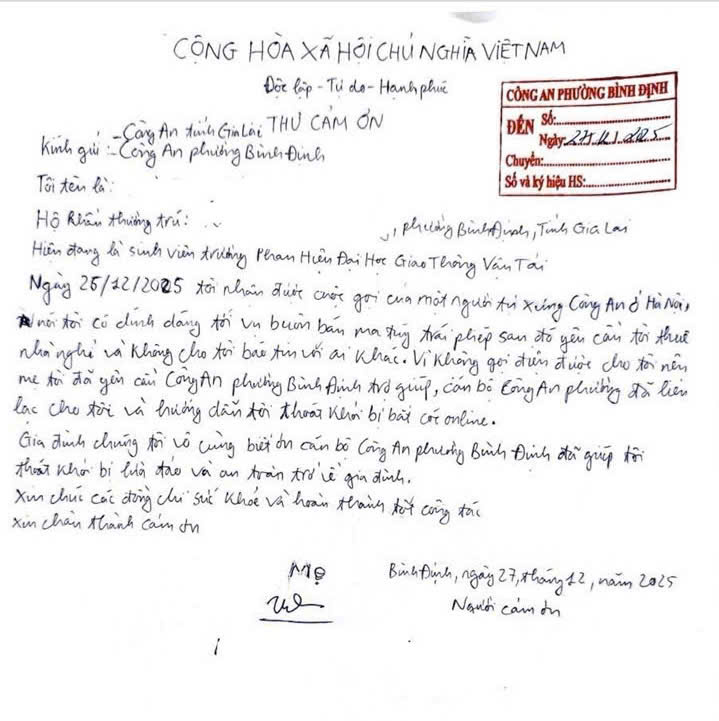 CỘNG HÒA XÃ HỘI CHỦ NGHĨA VIỆT NAM
Độc lập - Tự do - Hạnh phúc
THƯ CẢM ƠN
Kính gửi: - Công An tỉnh Gia Lai
- Công An phường Bình Định
CÔNG AN PHƯỜNG BÌNH ĐỊNH
ĐẾN Số:
Ngày: 27/12/2025
Chuyển:
Số và ký hiệu HS:
Tôi tên là:
Hộ khẩu thường trú: , phường Bình Định, Tỉnh Gia Lai
Hiện đang là sinh viên trường Phan Hiệu Đại Học Giao Thông Vận Tải
Ngày 25/12/2025 tôi nhận được cuộc gọi của một người tự xưng Công An ở Hà Nội,
nói tôi có dính dáng tới vụ buôn bán ma túy trái phép sau đó yêu cầu tôi thuê
nhà nghỉ và không cho tôi báo tin với ai khác. Vì không gọi điện được cho tôi nên
mẹ tôi đã yêu cầu Công An phường Bình Định trợ giúp, cán bộ Công An phường đã liên
lạc cho tôi và hướng dẫn tôi thoát khỏi bị bắt cóc online.
Gia đình chúng tôi vô cùng biết ơn cán bộ Công An phường Bình Định đã giúp tôi
thoát khỏi bị lừa đảo và an toàn trở về gia đình.
Xin chúc các đồng chí sức khỏe và hoàn thành tốt công tác
Xin chân thành cảm ơn
Bình Định, ngày 27, tháng 12, năm 2025
Mẹ
Người cảm ơn